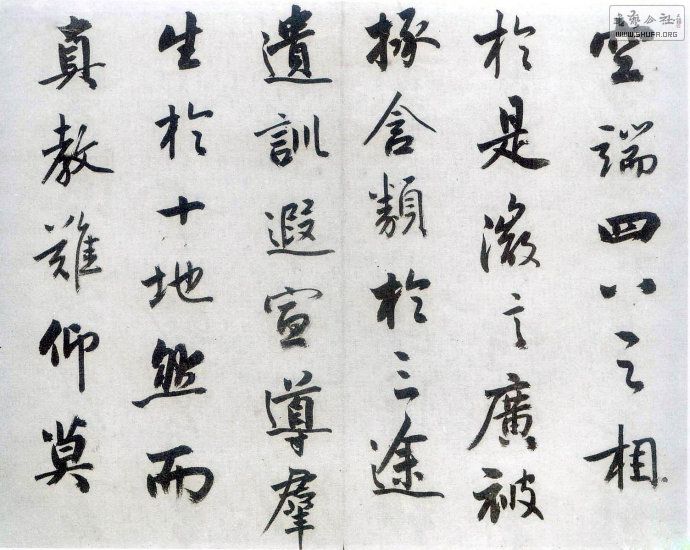 空端四八之相
於是微言廣被
拯含類於三途
遺訓遐宣導羣
生於十地然而
真教難仰莫
WWW.SHUFA.ORG